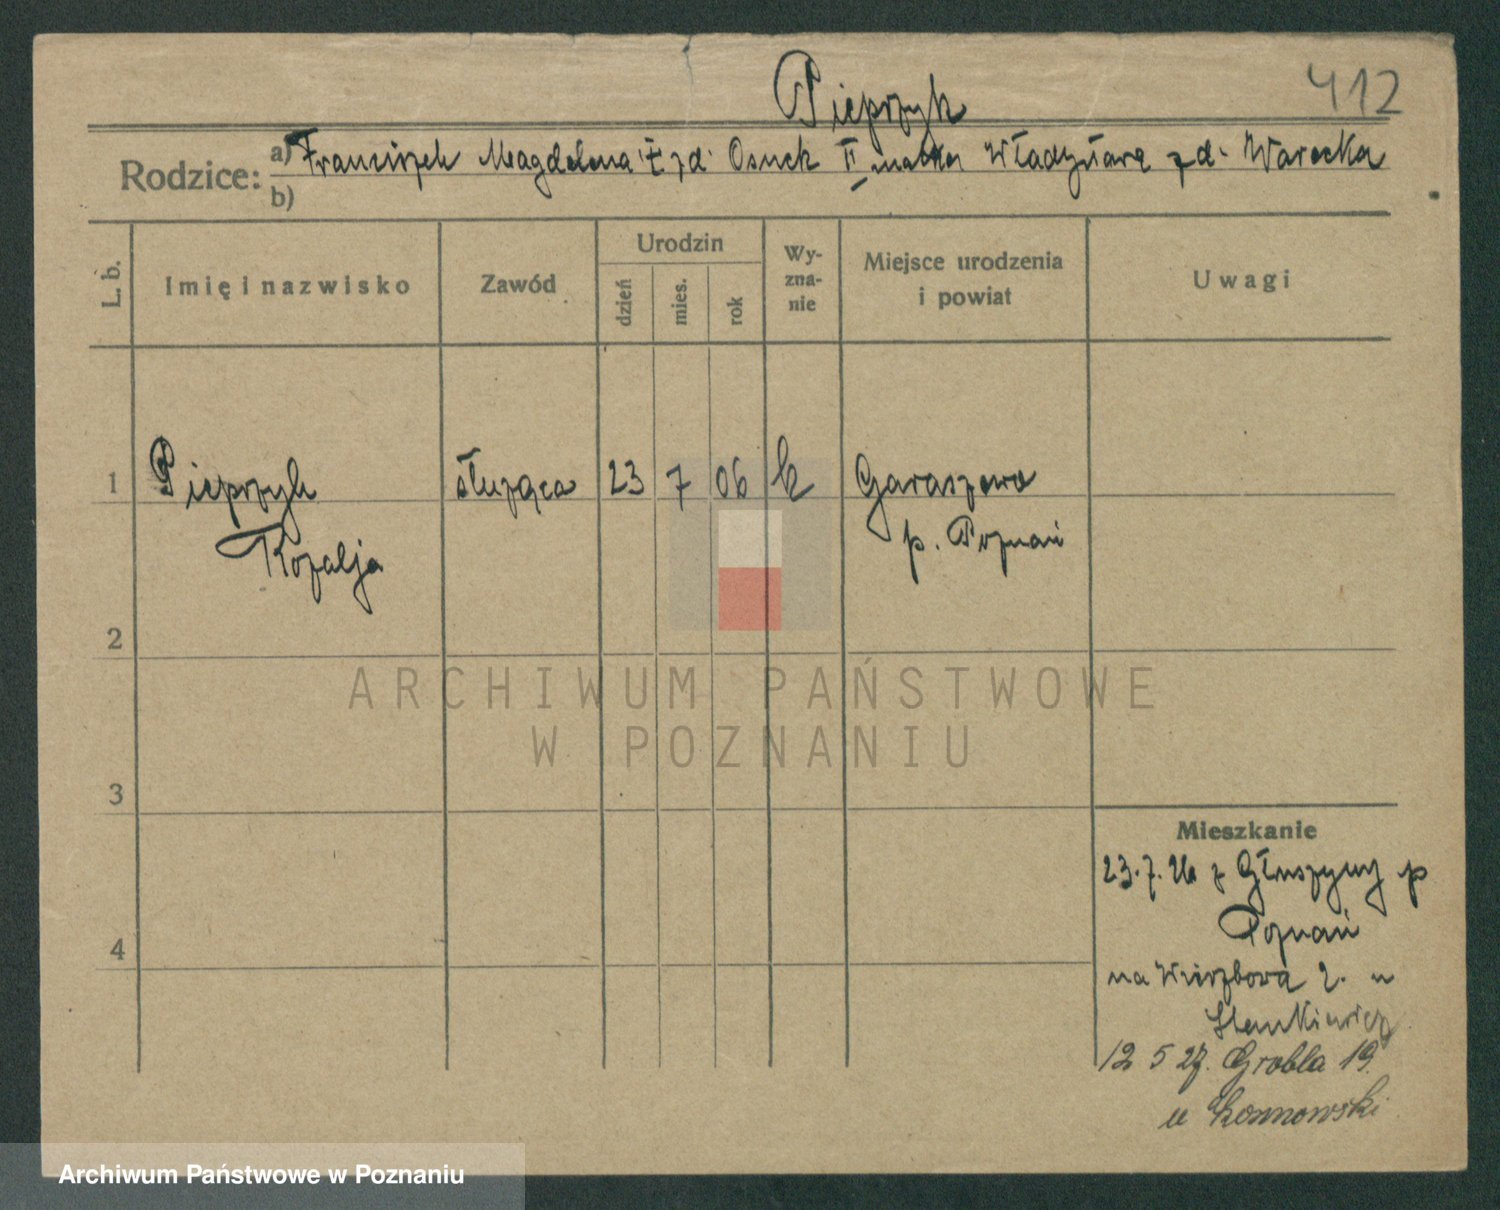 Pieprzyk
412
Rodzice: a) Franciszek Magdalena ż zd. Osuch II matka Władysława zd. Warecka
b)
L. b.
Imię i nazwisko
Zawód
Urodzin
dzień
mies.
rok
Wy-
zna-
nie
Miejsce urodzenia
i powiat
Uwagi
1 Pieprzyk służąca 23 7 06 k Garaszewo
Rozalja p. Poznań
2
3
4
Mieszkanie
23.7.26 z Głuszyny p
Poznań
na Wierzbowa 2. u
Stankiewicz
12 5 27. Grobla 19.
u
ARCHIWUM PAŃSTWOWE
W POZNANIU
Archiwum Państwowe w Poznaniu